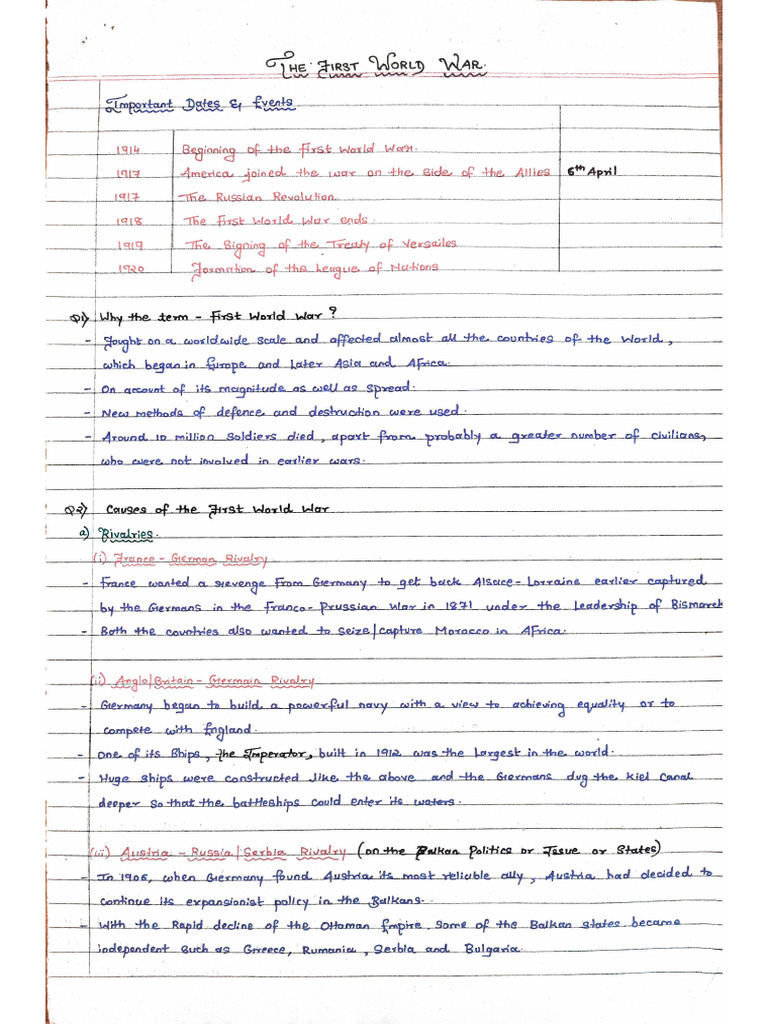 THE FIRST WORLD WAR.
Important Dates & Events
1914 Beginning of the First World War.
1917 America joined the war on the side of the Allies 6th April
1917 The Russian Revolution
1918 The First World War ends
1919 The Signing of the Treaty of Versailes
1920 Formation of the League of Nations
Q1) Why the term - First World War ?
- Fought on a worldwide scale and affected almost all the countries of the World,
which began in Europe and later Asia and Africa.
- On account of its magnitude as well as spread.
- New methods of defence and destruction were used.
- Around 10 million Soldiers died, apart from probably a greater number of civilians,
who were not involved in earlier wars.
Q2) Causes of the First World War
a) Rivalries.
(i) France - German Rivalry
- France wanted a revenge from Germany to get back Alsace-Lorraine earlier captured
by the Germans in the Franco-Prussian War in 1871 under the Leadership of Bismarck
- Both the countries also wanted to seize/capture Morocco in Africa.
(ii) Anglo/Britain - Germain Rivalry
- Germany began to build a powerful navy with a view to achieving equality or to
compete with England.
- One of its Ships, the Imperator, built in 1912 was the largest in the world.
- Huge ships were constructed like the above and the Germans dug the Kiel Canal
deeper so that the battleships could enter its waters.
(iii) Austria - Russia/Serbia Rivalry (on the Balkan Politics or Issue or States)
- In 1906, when Germany found Austria its most reliable ally, Austria had decided to
continue its expansionist policy in the Balkans.
- With the Rapid decline of the Ottoman Empire. Some of the Balkan states became
independent such as Greece, Rumania, Serbia and Bulgaria.